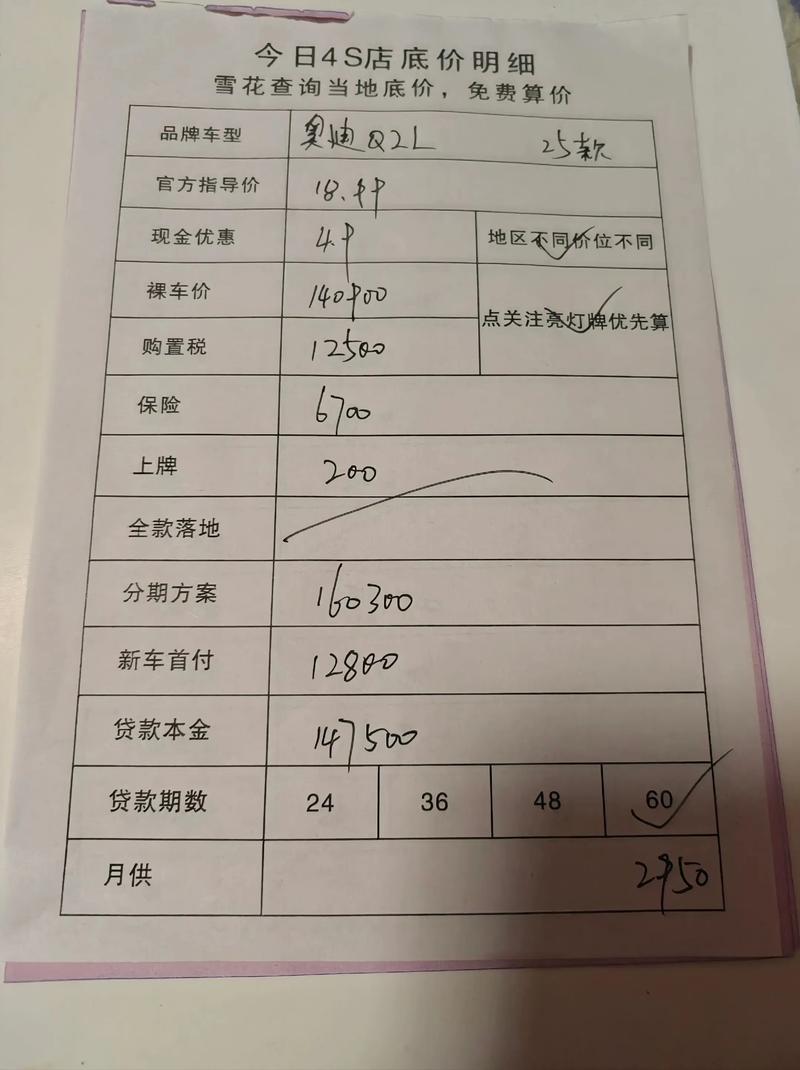 今日4S店底价明细
雪花查询当地底价，免费算价
品牌车型 奥迪Q2L 25款
官方指导价 18.99
现金优惠 4.9 地区不同价位不同
裸车价 140900
点关注亮灯牌优先算
购置税 12500
保险 6700
上牌 200
全款落地
分期方案 160300
新车首付 12800
贷款本金 147500
贷款期数 24 36 48 60
月供 2950